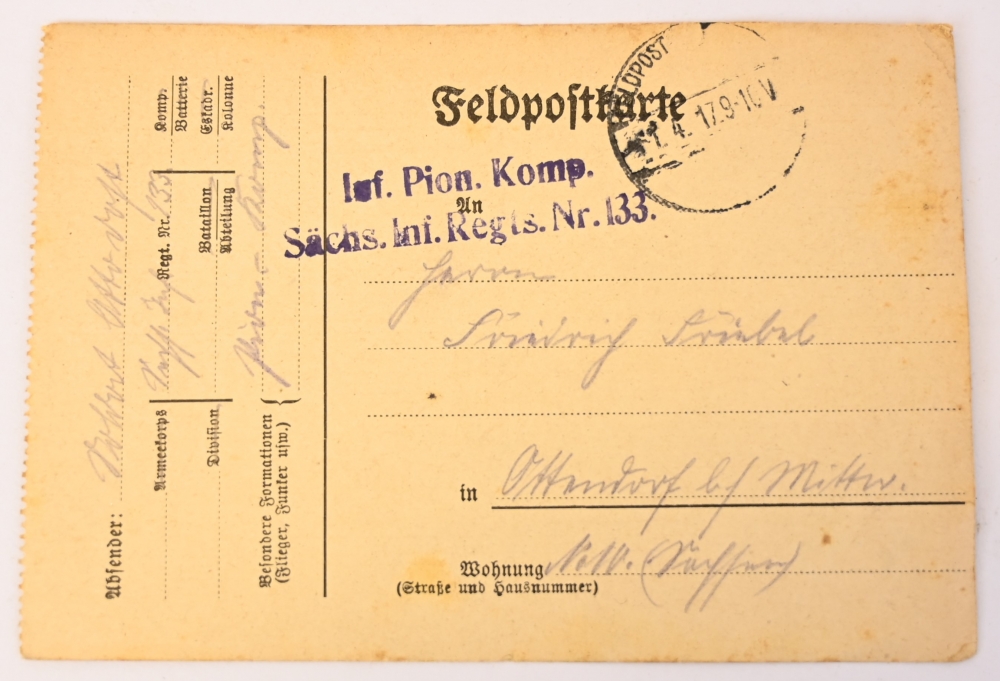 Feldpostkarte
FELDPOST
1. 4. 17. 9-10 V
Inf. Pion. Komp.
An
Sächs. Inf. Regts. Nr. 133.
Herrn
Friedrich Friebel
in Ottendorf b/ Mittw.
Wohnung (Sachsen)
(Straße und Hausnummer)
Absender:
Armeekorps
Regt. Nr. 133
Komp.
Batterie
Division
Bataillon
Abteilung
Eskadr.
Kolonne
Besondere Formationen
(Flieger, Funker usw.)
Komp.